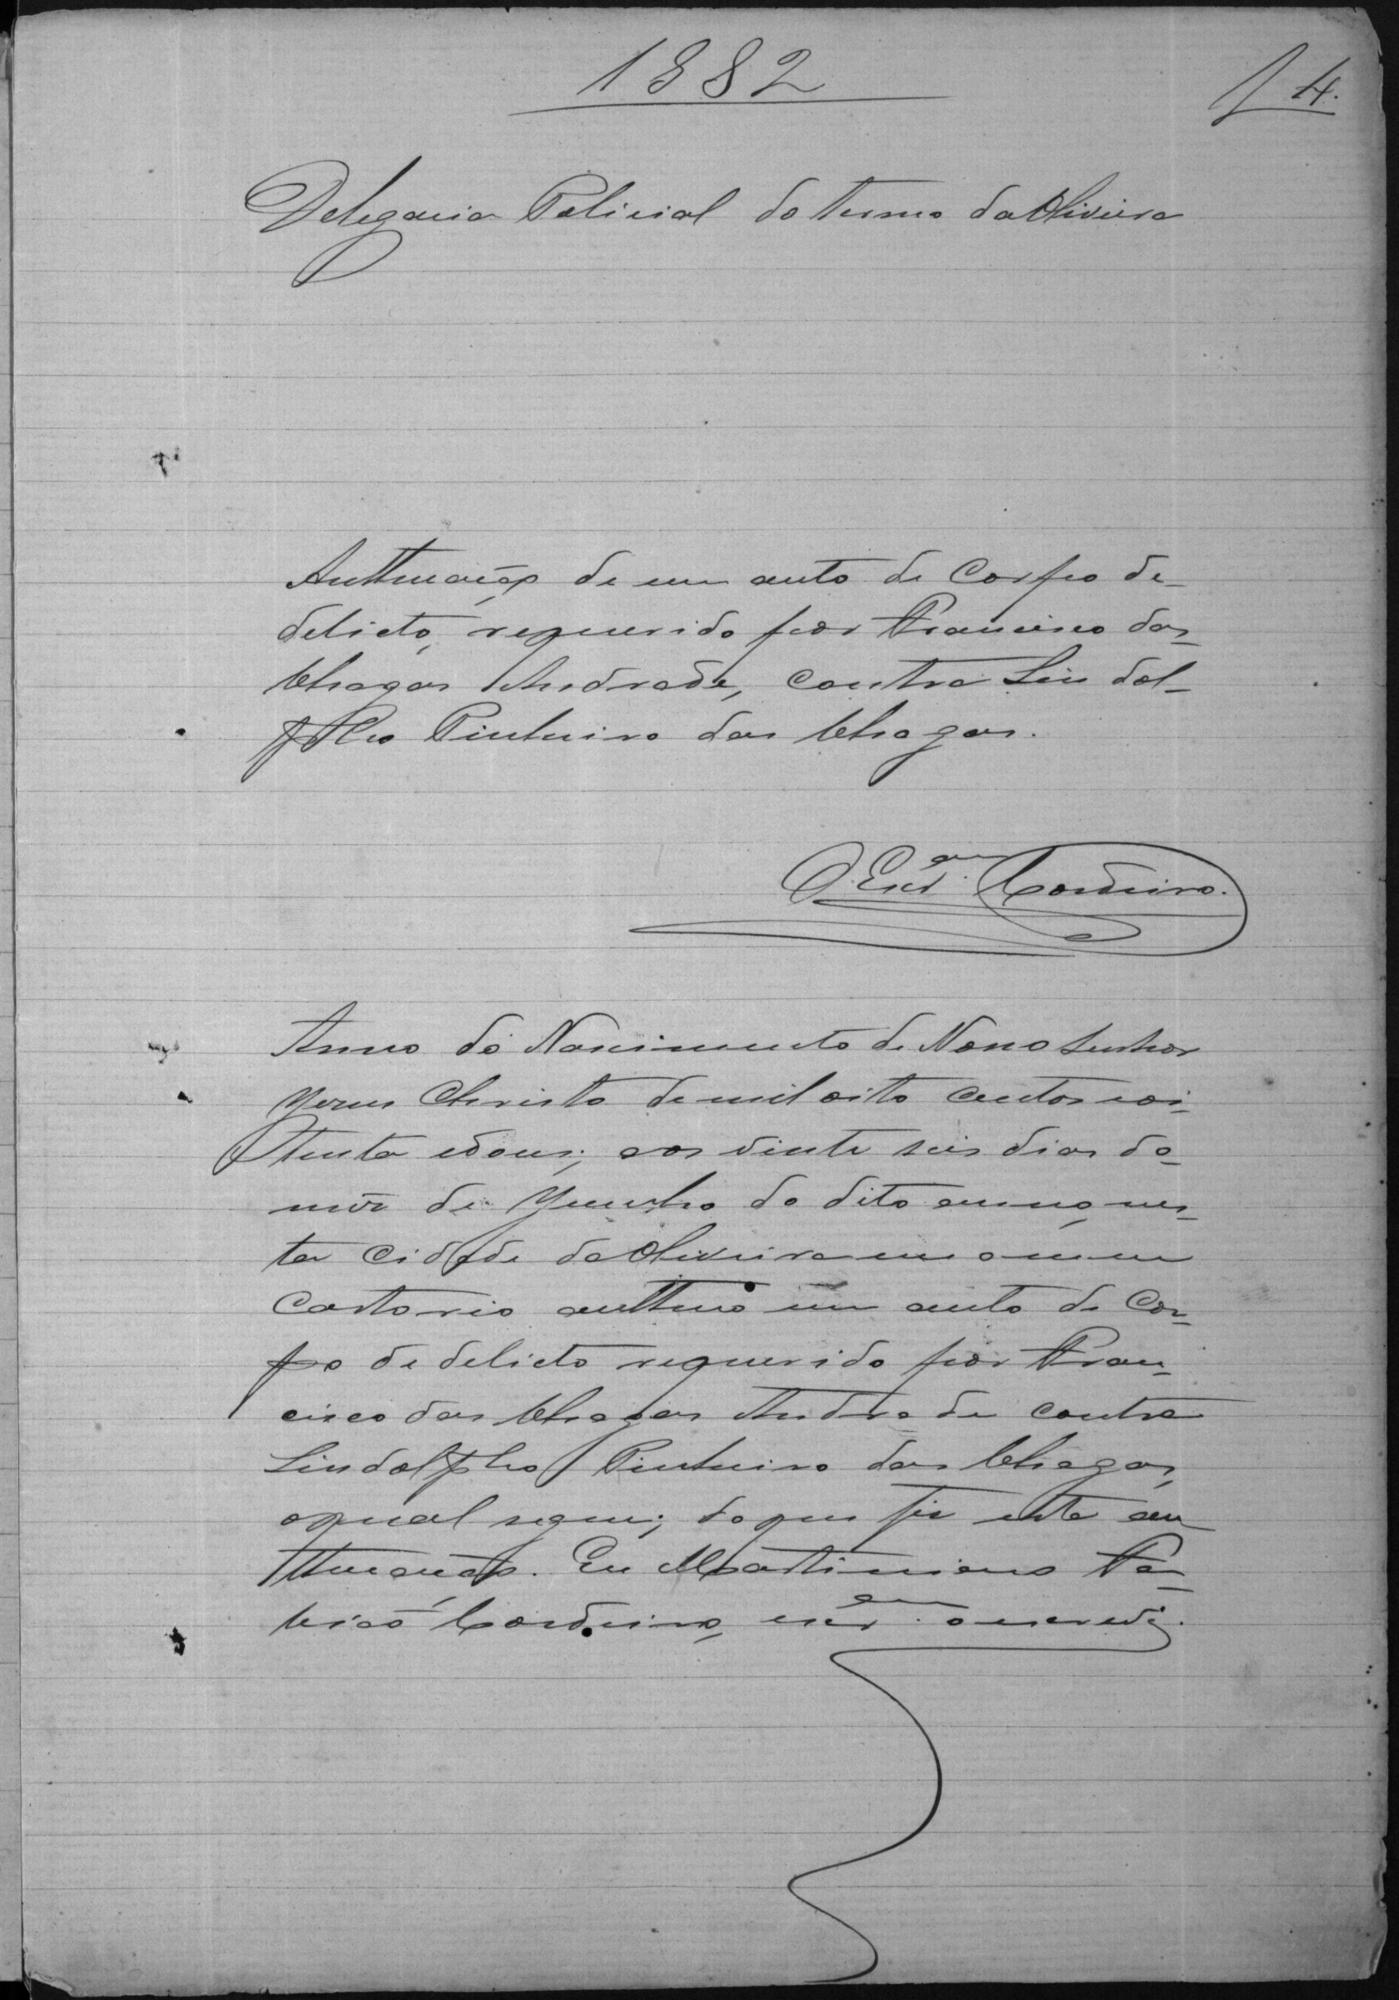 1882
f 4.
Delegacia Policial do termo da Oliveira
Authuação de um auto de Corpo de
delicto, requerido por Francisco das
Chagas Andrade, contra Lindol-
pho Pinheiro das Chagas.
O Escr.am Cordeiro.
Anno do Nascimento de Nosso Senhor
Jezus Christo de mil oito centos e oi-
tenta e dous; aos vinte seis dias do
mêz de Junho do dito anno, nes-
ta Cidade da Oliveira em o meu
Cartorio authuo um auto de Cor-
po de delicto requerido por Fran-
cisco das Chagas Andrade contra
Lindolpho Pinheiro das Chagas,
o qual segue; do que fiz esta au
thuação. Eu Martiniano
Cordeiro, escr.am o escrevi.